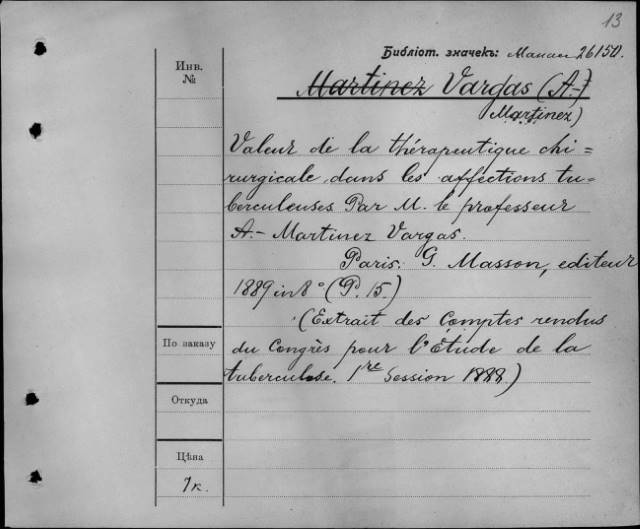 13
Библiот. значекъ: 26150.
Инв.
№
Martinez Vargas (A.-)
Martinez)
Valeur de la thérapeutique chi=
rurgicale dans les affections tu-
berculeuses. Par M. le professeur
A.- Martinez Vargas.
Paris: G. Masson, editeur
1889 in 8° (P. 15.)
(Extrait des Comptes rendus
По заказу
du Congrès pour l'Etude de la
tuberculose. 1re Session 1888.)
Откуда
Цѣна
1к.